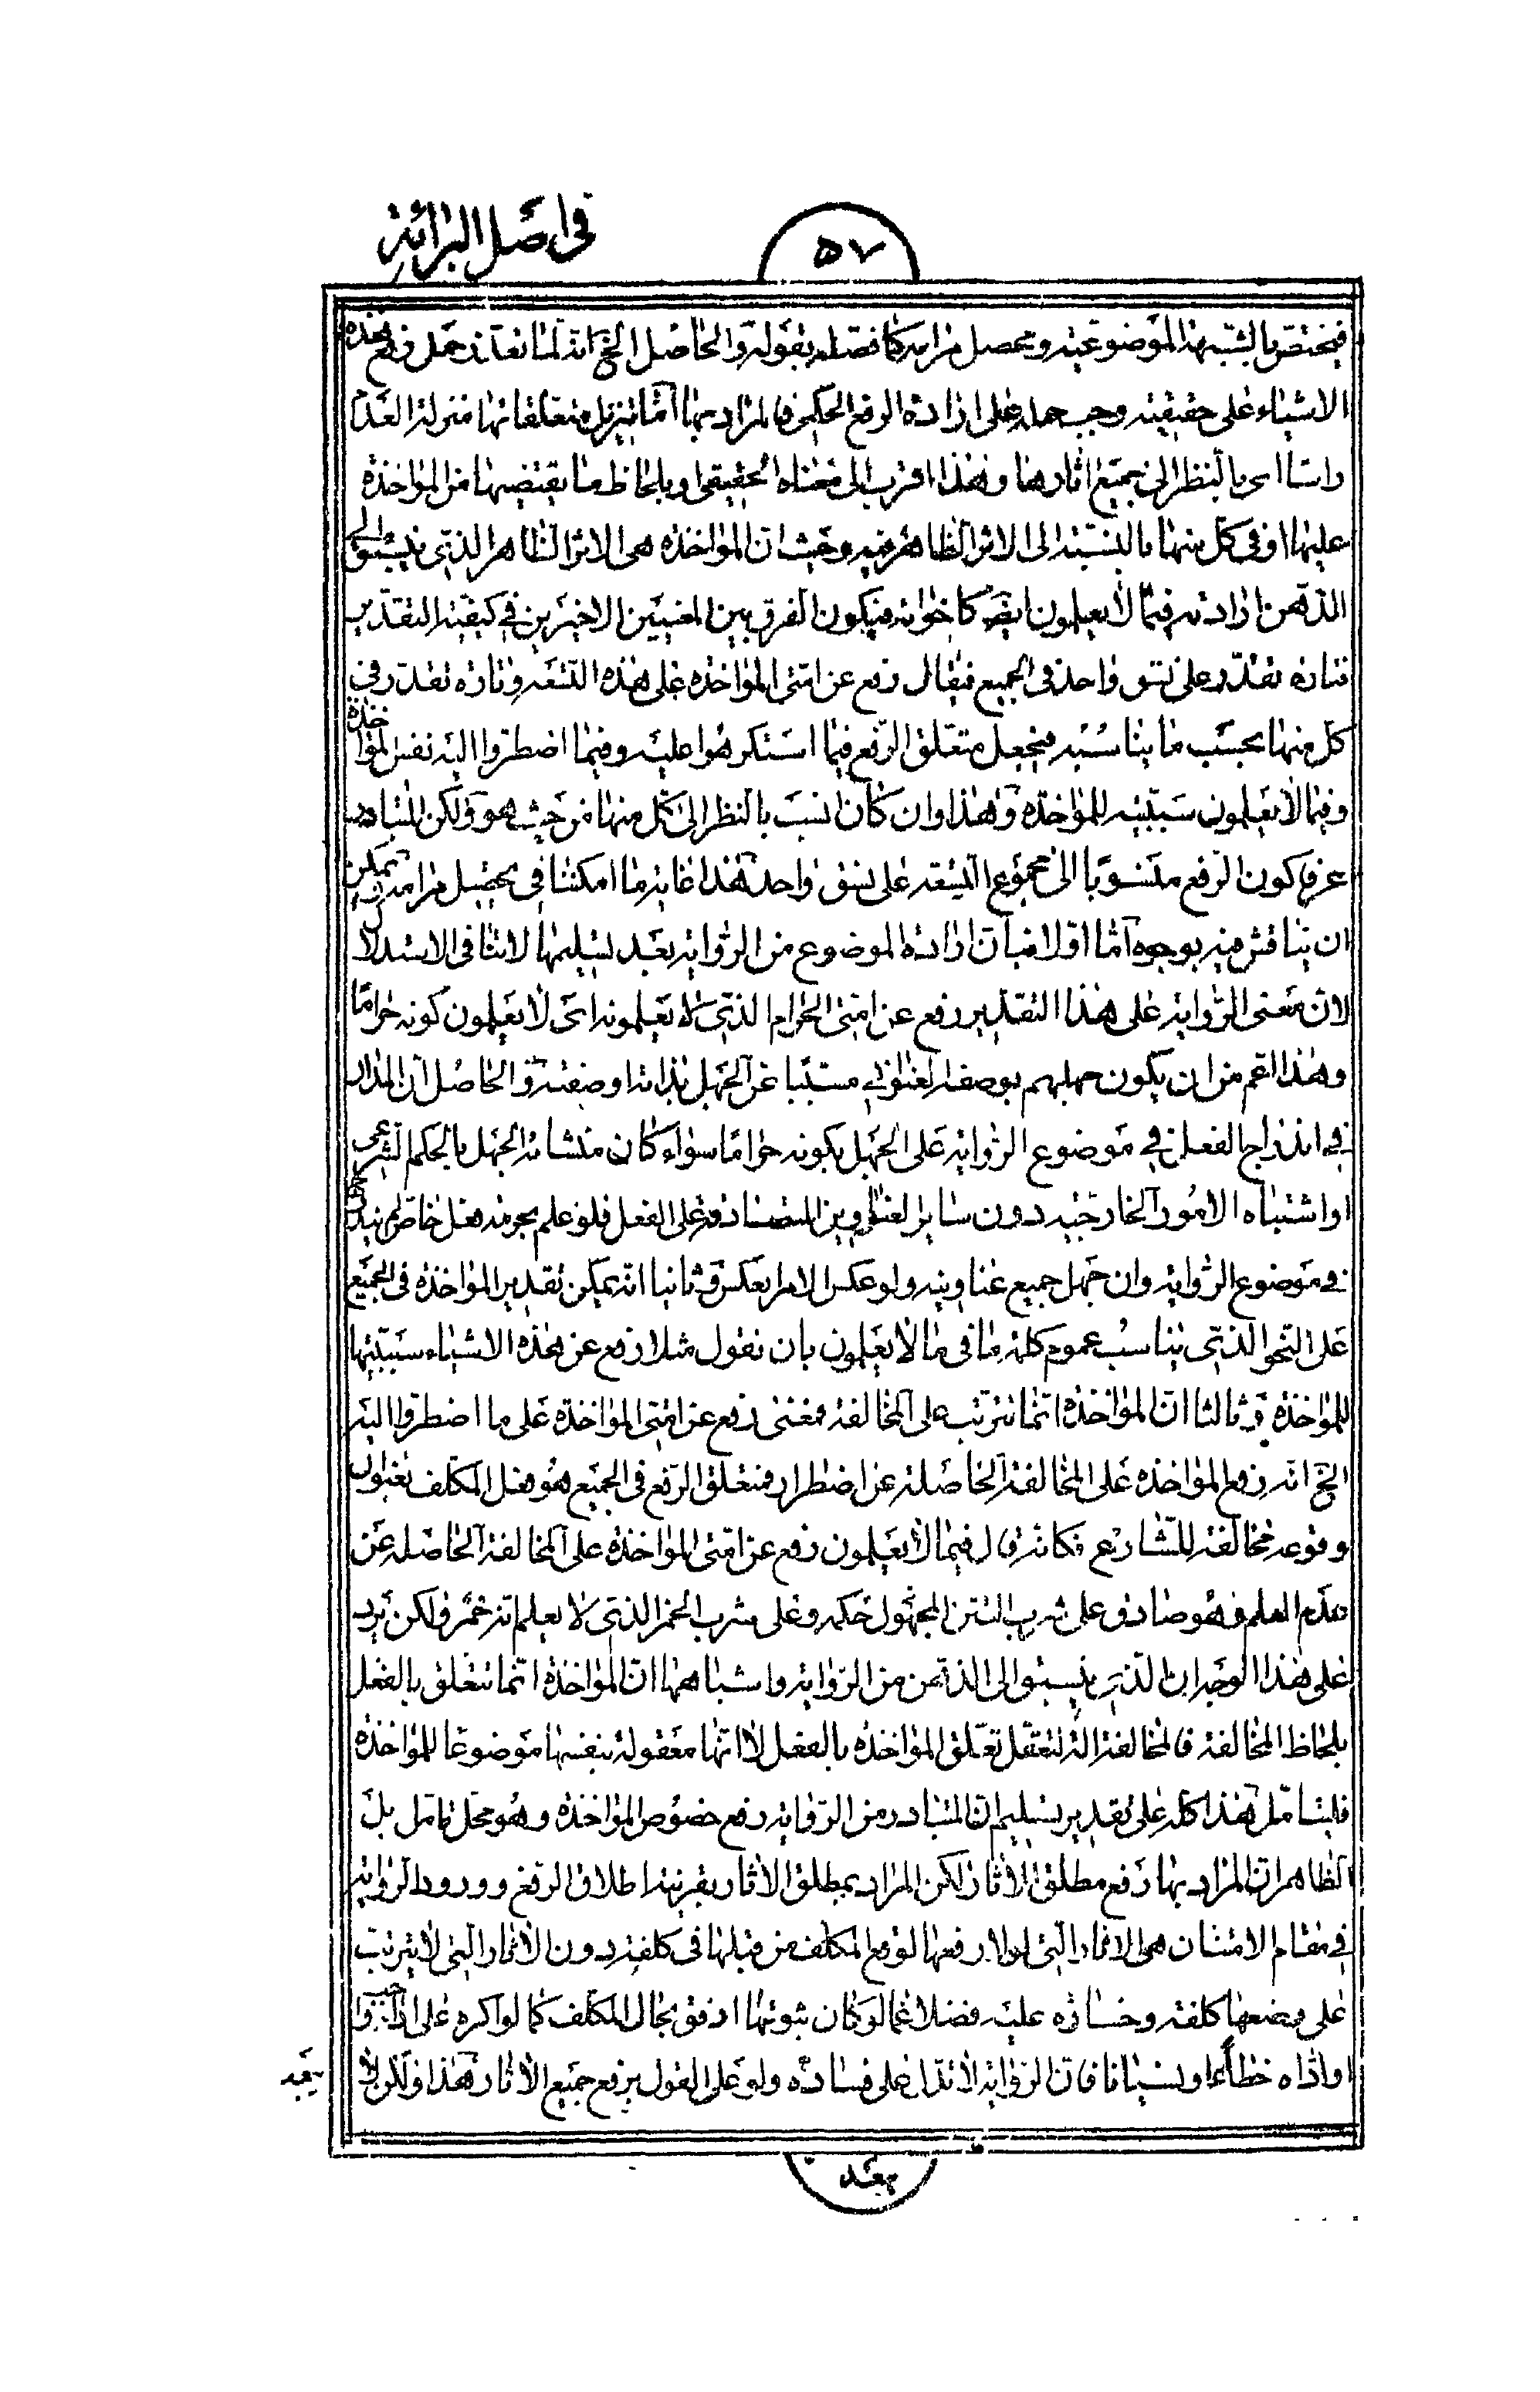 في اصل البرائة
٥٧
فيختص بالشبهة الموضوعية ومحصل مرامه كما فصله بقوله والحاصل الخ انه لما تعذر حمل رفع هذه
الاشياء على حقيقته وجب حمله على ارادة الرفع الحكمي فالمراد بها اما تنزيل متعلقاتها منزلة العدم
راسا اى بالنظر الى جميع اثارها وهذا اقرب الى معناه الحقيقى او بلحاظ ما يقتضيها من المؤاخذة
عليها او في كل منها بالنسبة الى الاثر الظاهر فيه وحيث ان المؤاخذة هى الاثر الظاهر الذى ينسبق الى
الذهن ارادته فيما لا يعلمون ايضا كاخواته فيكون الفرق بين المعنيين الاخيرين في كيفية التقدير
فتارة تقدر على نسق واحد في الجميع فيقال رفع عن امتى المؤاخذة على هذه التسعة وتارة تقدر في
كل منها بحسب ما يناسبه فيجعل متعلق الرفع فيما استكرهوا عليه وفيما اضطروا اليه نفس المؤاخذة
وفيما لا يعلمون سببيته للمؤاخذة وهذا وان كان انسب بالنظر الى كل منها من حيث هو ولكن المتبادر
عرفا كون الرفع منسوبا الى مجموع التسعة على نسق واحد هذا غاية ما امكننا في تحصيل مرامه ويمكن
ان يناقش فيه بوجوه اما اولا فبان ارادة الموضوع من الرواية بعد تسليمها لا تنافى الاستدلال
لان معنى الرواية على هذا التقدير رفع عن امتى الحرام الذى لا يعلمونه اى لا يعلمون كونه حراما
وهذا اعم من ان يكون جهلهم بوصفه العنوانى مسببا عن الجهل بذاته او صفته والحاصل ان المدار
في اندراج الفعل في موضوع الرواية على الجهل بكونه حراما سواء كان منشائه الجهل بالحكم الشرعى
او اشتباه الامور الخارجية دون ساير العناوين المتصادقة على الفعل فلو علم بحرمة فعل خاص لم يندرج
في موضوع الرواية وان جهل جميع عناوينه ولو عكس الامر بعكس وثانيا انه يمكن تقدير المؤاخذة في الجميع
على النحو الذى يناسب عموم كلمة ما في ما لا يعلمون بان نقول مثلا رفع عن هذه الاشياء سببيتها
للمؤاخذة وثالثا ان المؤاخذة انما تترتب على المخالفة فمعنى رفع عن امتى المؤاخذة على ما اضطروا اليه
الخ انه رفع المؤاخذة على المخالفة الحاصلة عن اضطرار فمتعلق الرفع في الجميع هو فعل المكلف بعنوان
وقوعه مخالفة للشارع فكانه قال فيما لا يعلمون رفع عن امتى المؤاخذة على المخالفة الحاصلة عن
عدم العلم وهو صادق على شرب التتن المجهول حكمه وعلى شرب الخمر الذى لا يعلم انه خمر ولكن يرد
على هذا الوجه ان الذى ينسبق الى الذهن من الرواية واشباهها ان المؤاخذة انما تتعلق بالفعل
بلحاظ المخالفة فالمخالفة الة لتعقل تعلق المؤاخذة بالفعل لا انها معقولة بنفسها موضوعا للمؤاخذة
فليتامل هذا كله على تقدير تسليم ان المتبادر من الرواية رفع خصوص المؤاخذة وهو محل تامل بل
الظاهر ان المراد بها رفع مطلق الاثار لكن المراد بمطلق الاثار بقرينة اطلاق الرفع وورود الرواية
في مقام الامتنان هى الاثار التى لولا رفعها لوقع المكلف من قبلها في كلفة دون الاثار التى لا يترتب
على وضعها كلفة وخسارة عليه فضلا عما لو كان ثبوتها ارفق بحال المكلف كما لو اكره على اداء واجب
او اداه خطأ او نسيانا فان الرواية لا تدل على فساده ولو على القول برفع جميع الاثار هذا ولكن لا
يبعد
بعد